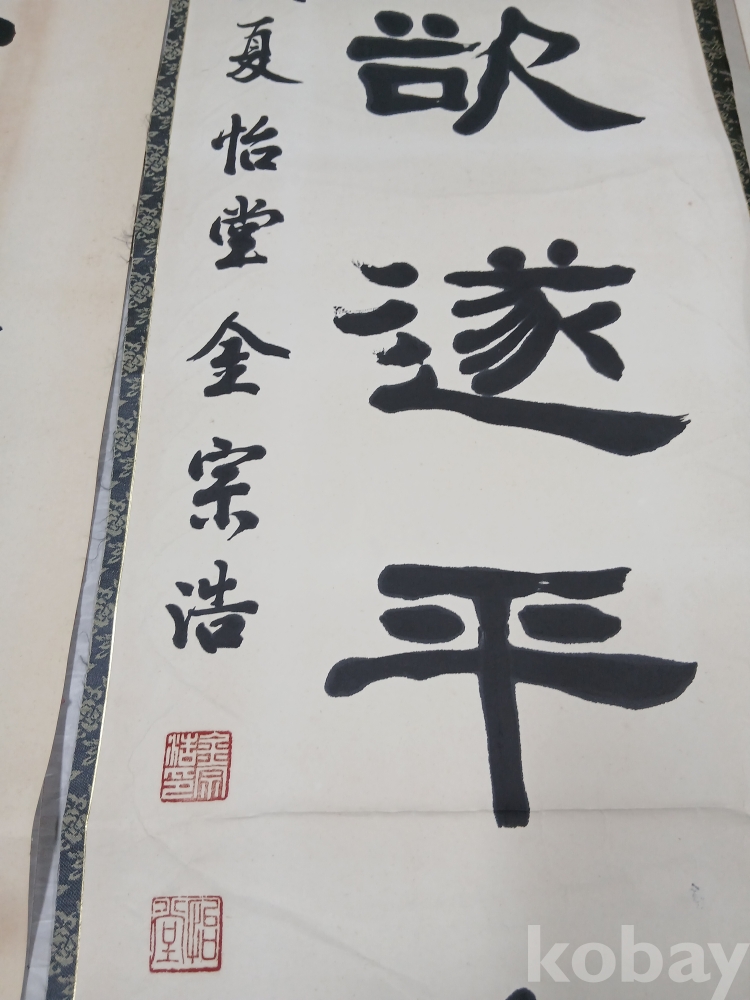 欲遂平
夏怡堂金宗浩
金宗浩印
怡堂
kobay